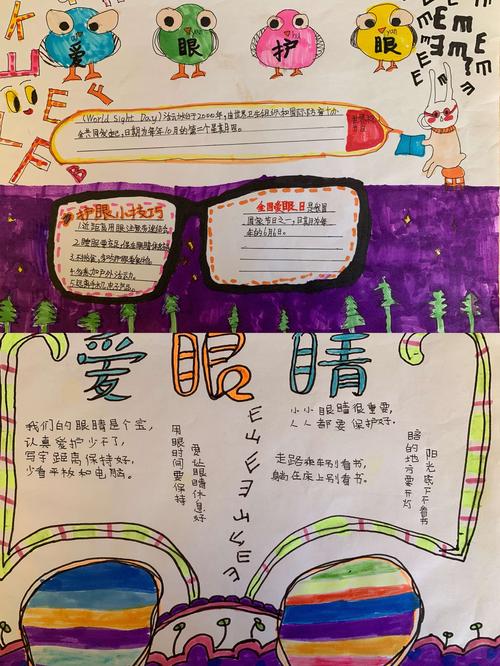 爱 眼 护 眼
(World Sight Day) 活动始于2000年,由世界卫生组织和国际防盲协
会共同发起,日期为每年10月的第二个星期四。
护眼小技巧
全国爱眼日是我国
国家节日之一,日其月为每
年的6月6日。
2.睡眠要充足,
4.多参加户外活动。
5.远离手机、电子产品。
爱眼睛
我们的眼睛是个宝,
认真爱护少不了,
写字距离保持好,
少看平板和电脑。
用眼时间要保持
爱让眼睛休息好
E M E W E 3 W E 3
小小眼睛很重要,
人人都要保护好,
走路乘车别看书,
躺在床上别看书。
暗的地方要开灯
阳光底下不看书